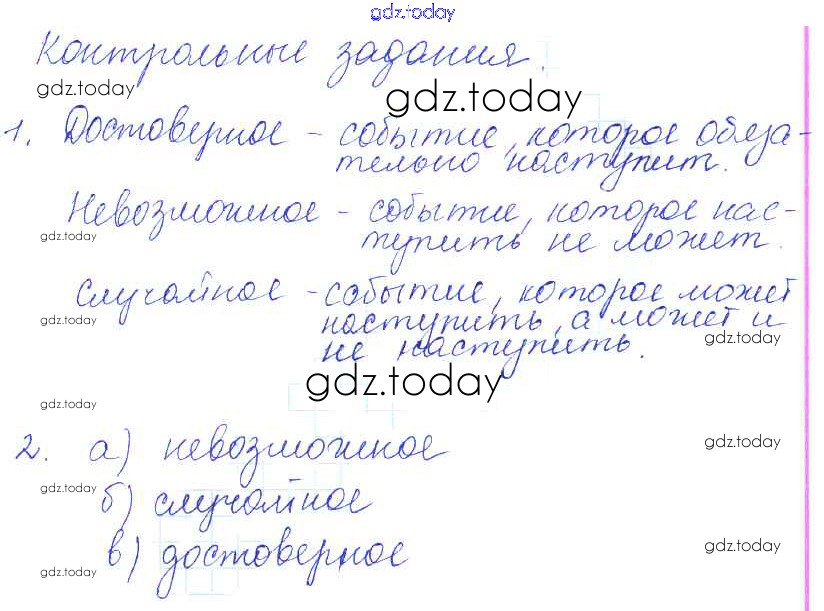 gdz.today
Контрольные задания.
gdz.today
gdz.today
1. Достоверное - событие, которое обяза-
тельно наступит.
Невозможное - событие, которое нас-
gdz.today
тупить не может.
Случайное - событие, которое может
gdz.today
наступить, а может и
gdz.today
не наступить.
gdz.today
gdz.today
2. а) невозможное
gdz.today
gdz.today
б) случайное
в) достоверное
gdz.today
gdz.today